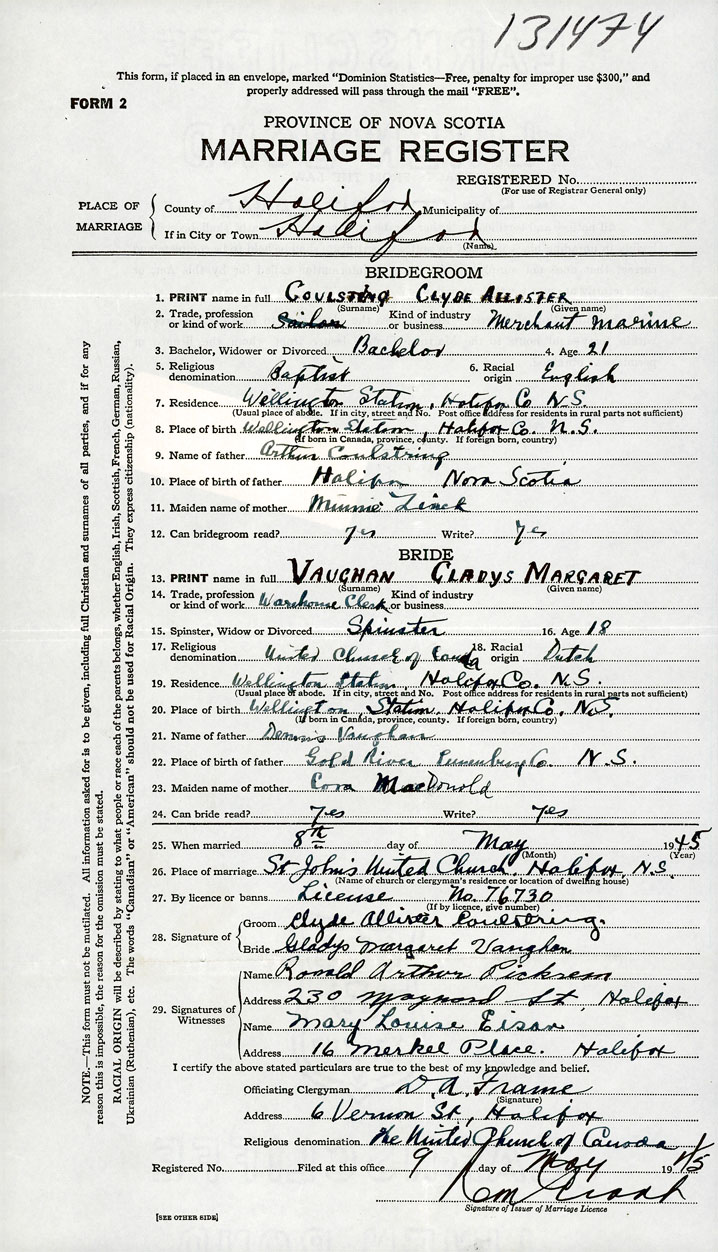 131474
This form, if placed in an envelope, marked "Dominion Statistics—Free, penalty for improper use $300," and
properly addressed will pass through the mail "FREE".
FORM 2
PROVINCE OF NOVA SCOTIA
MARRIAGE REGISTER
REGISTERED No.
(For use of Registrar General only)
PLACE OF MARRIAGE
County of Halifax Municipality of
If in City or Town Halifax
(Name)
BRIDEGROOM
1. PRINT name in full COULSTRING CLYDE ALLISTER
(Surname) (Given name)
2. Trade, profession or kind of work Sailor Kind of industry or business Merchant Marine
3. Bachelor, Widower or Divorced Bachelor 4. Age 21
5. Religious denomination Baptist 6. Racial origin English
7. Residence Wellington Station, Halifax Co. N.S.
(Usual place of abode. If in city, street and No. Post office address for residents in rural parts not sufficient)
8. Place of birth Wellington Station, Halifax Co. N.S.
(If born in Canada, province, county. If foreign born, country)
9. Name of father Arthur Coulstring
10. Place of birth of father Halifax Nova Scotia
11. Maiden name of mother Minnie
12. Can bridegroom read? yes Write? yes
BRIDE
13. PRINT name in full VAUGHAN GLADYS MARGARET
(Surname) (Given name)
14. Trade, profession or kind of work Warehouse Clerk Kind of industry or business
15. Spinster, Widow or Divorced Spinster 16. Age 18
17. Religious denomination United Church of Canada 18. Racial origin Dutch
19. Residence Wellington Station, Halifax Co. N.S.
(Usual place of abode. If in city, street and No. Post office address for residents in rural parts not sufficient)
20. Place of birth Wellington Station, Halifax Co. N.S.
(If born in Canada, province, county. If foreign born, country)
21. Name of father Dennis Vaughan
22. Place of birth of father Gold River Lunenburg Co. N.S.
23. Maiden name of mother Cora MacDonald
24. Can bride read? yes Write? yes
25. When married 8th day of May 1945
(Month) (Year)
26. Place of marriage St John's United Church, Halifax, N.S.
(Name of church or clergyman's residence or location of dwelling house)
27. By licence or banns License No. 76730
(If by licence, give number)
28. Signature of
Groom Clyde Allister Coulstring.
Bride Gladys Margaret Vaughan
29. Signatures of Witnesses
Name Ronald Arthur
Address 230 Maynard St, Halifax
Name Mary Louise Eisan
Address 16 Merkel Place. Halifax
I certify the above stated particulars are true to the best of my knowledge and belief.
Officiating Clergyman D. A. Frame
(Signature)
Address 6 Vernon St, Halifax
Religious denomination The United Church of Canada
Registered No. Filed at this office 9 day of May 1945
Signature of Issuer of Marriage Licence
[SEE OTHER SIDE]
NOTE.—This form must not be mutilated. All information asked for is to be given, including full Christian and surnames of all parties, and if for any
reason this is impossible, the reason for the omission must be stated.
RACIAL ORIGIN will be described by stating to what people or race each of the parents belongs, whether English, Irish, Scottish, French, German, Russian,
Ukrainian (Ruthenian), etc. The words "Canadian" or "American" should not be used for Racial Origin. They express citizenship (nationality).